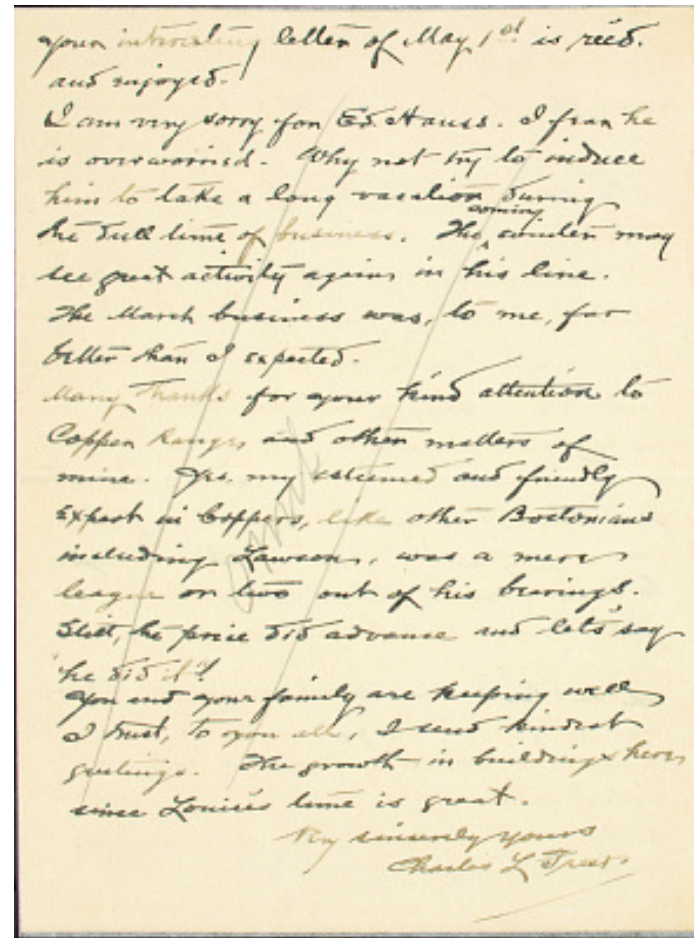 your interesting letter of May 1st is rec'd.
and enjoyed.
I am very sorry for Ed. Hauss. I fear he
is overworried. Why not try to induce
him to take a long vacation during
the dull time of business. The coming winter may
see great activity again in his line.
The March business was, to me, far
better than I expected.
Many Thanks for your kind attention to
Copper Range, and other matters of
mine. Yes, my esteemed and friendly
Expert in Coppers, like other Bostonians
including Lawson, was a mere
league or two out of his bearings.
Still, the price did advance and let's say
"he did it"!
You and your family are keeping well
I trust, to you all, I send kindest
greetings. The growth in buildings here
since Louie's time is great.
Very sincerely yours
Charles L